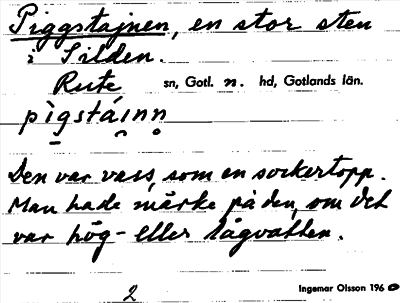 Piggstajnen, en stor sten
i Silden.
Rute sn, Gotl. n. hd, Gotlands län.
pìgstáinn
Den var vass, som en sockertopp.
Man hade märke på den, om det
var hög- eller lågvatten.
2 Ingemar Olsson 1960